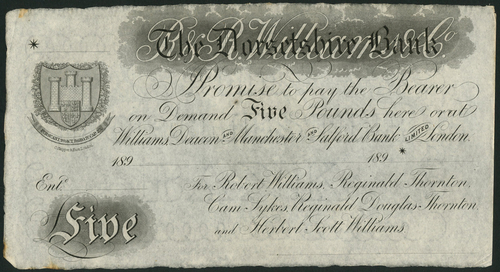 R. & R. Williams & Co
The Dorsetshire Bank
*
I Promise to pay the Bearer
on Demand Five Pounds here or at
Williams, Deacon AND Manchester AND Salford Bank LIMITED London.
189 189 *
Entd
For Robert Williams, Reginald Thornton,
Cam Sykes, Reginald Douglas Thornton
and Herbert Scott Williams
Five